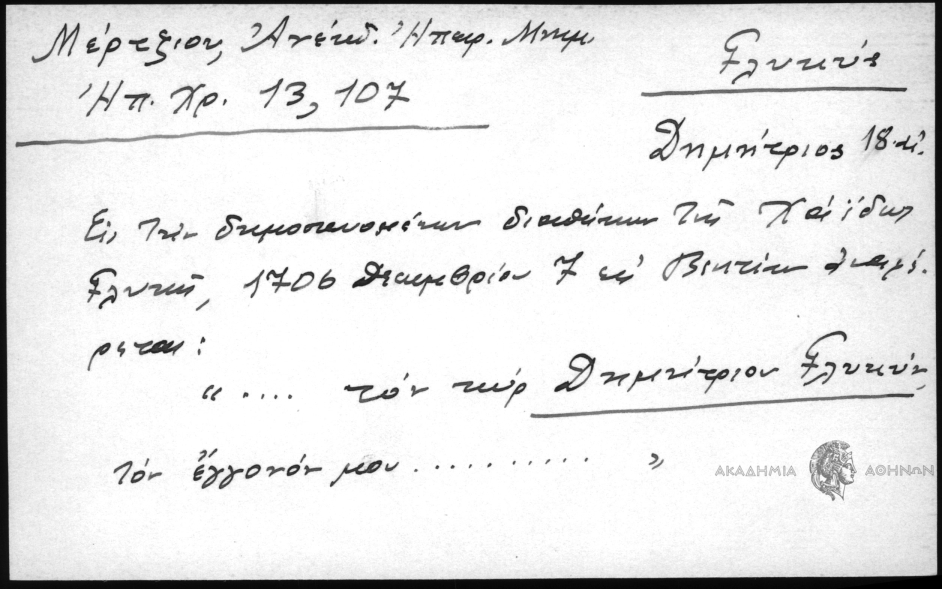 Μέρτζιου, Ἀνέκδ. Ἠπειρ. Μνημ.
Ἠπ. Χρ. 13, 107
Γλυκύς
Δημήτριος 18 αἰ.
Εἰς τὴν δημοσιευομένην διαθήκην τῆς Χάϊδως
Γλυκῆ, 1706 Δεκεμβρίου 7 ἐν Βενετίᾳ ἀναφέ-
ρεται:
« .... τόν κύρ Δημήτριον Γλυκύν,
τόν ἔγγονόν μου .......... »
ΑΚΑΔΗΜΙΑ ΑΘΗΝΩΝ